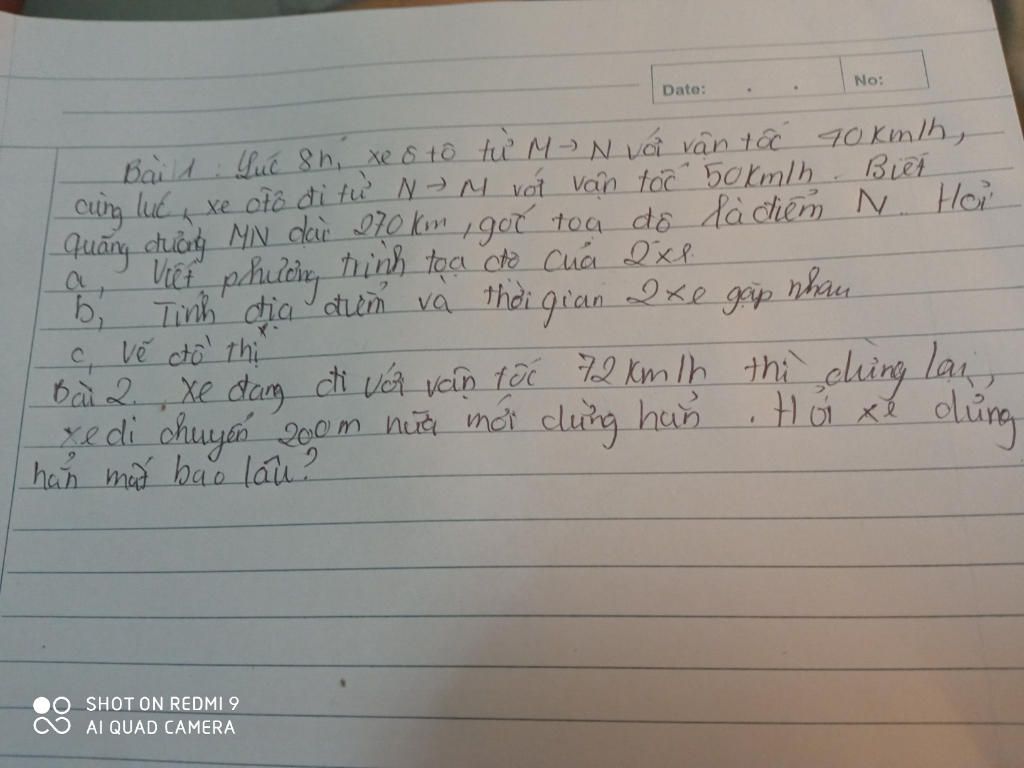 Date: . . No:
Bài 1: Lúc 8h, xe ô tô từ M → N với vận tốc 40km/h,
cùng lúc, xe ôtô đi từ N → M với vận tốc 50km/h. Biết
quãng đường MN dài 270km, gốc toạ độ là điểm N. Hỏi
a, Viết phương trình tọa độ của 2 xe.
b, Tính địa điểm và thời gian 2 xe gặp nhau
c, Vẽ đồ thị
Bài 2. Xe đang đi với vận tốc 72km/h thì dừng lại,
xe di chuyển 200m nữa mới dừng hẳn. Hỏi xe dừng
hẳn mất bao lâu?
SHOT ON REDMI 9
AI QUAD CAMERA